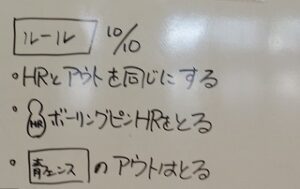 ルール 10/10
・HRとアウトを同じにする
・HR ボーリングピンHRをとる
・青フェンスのアウトはとる